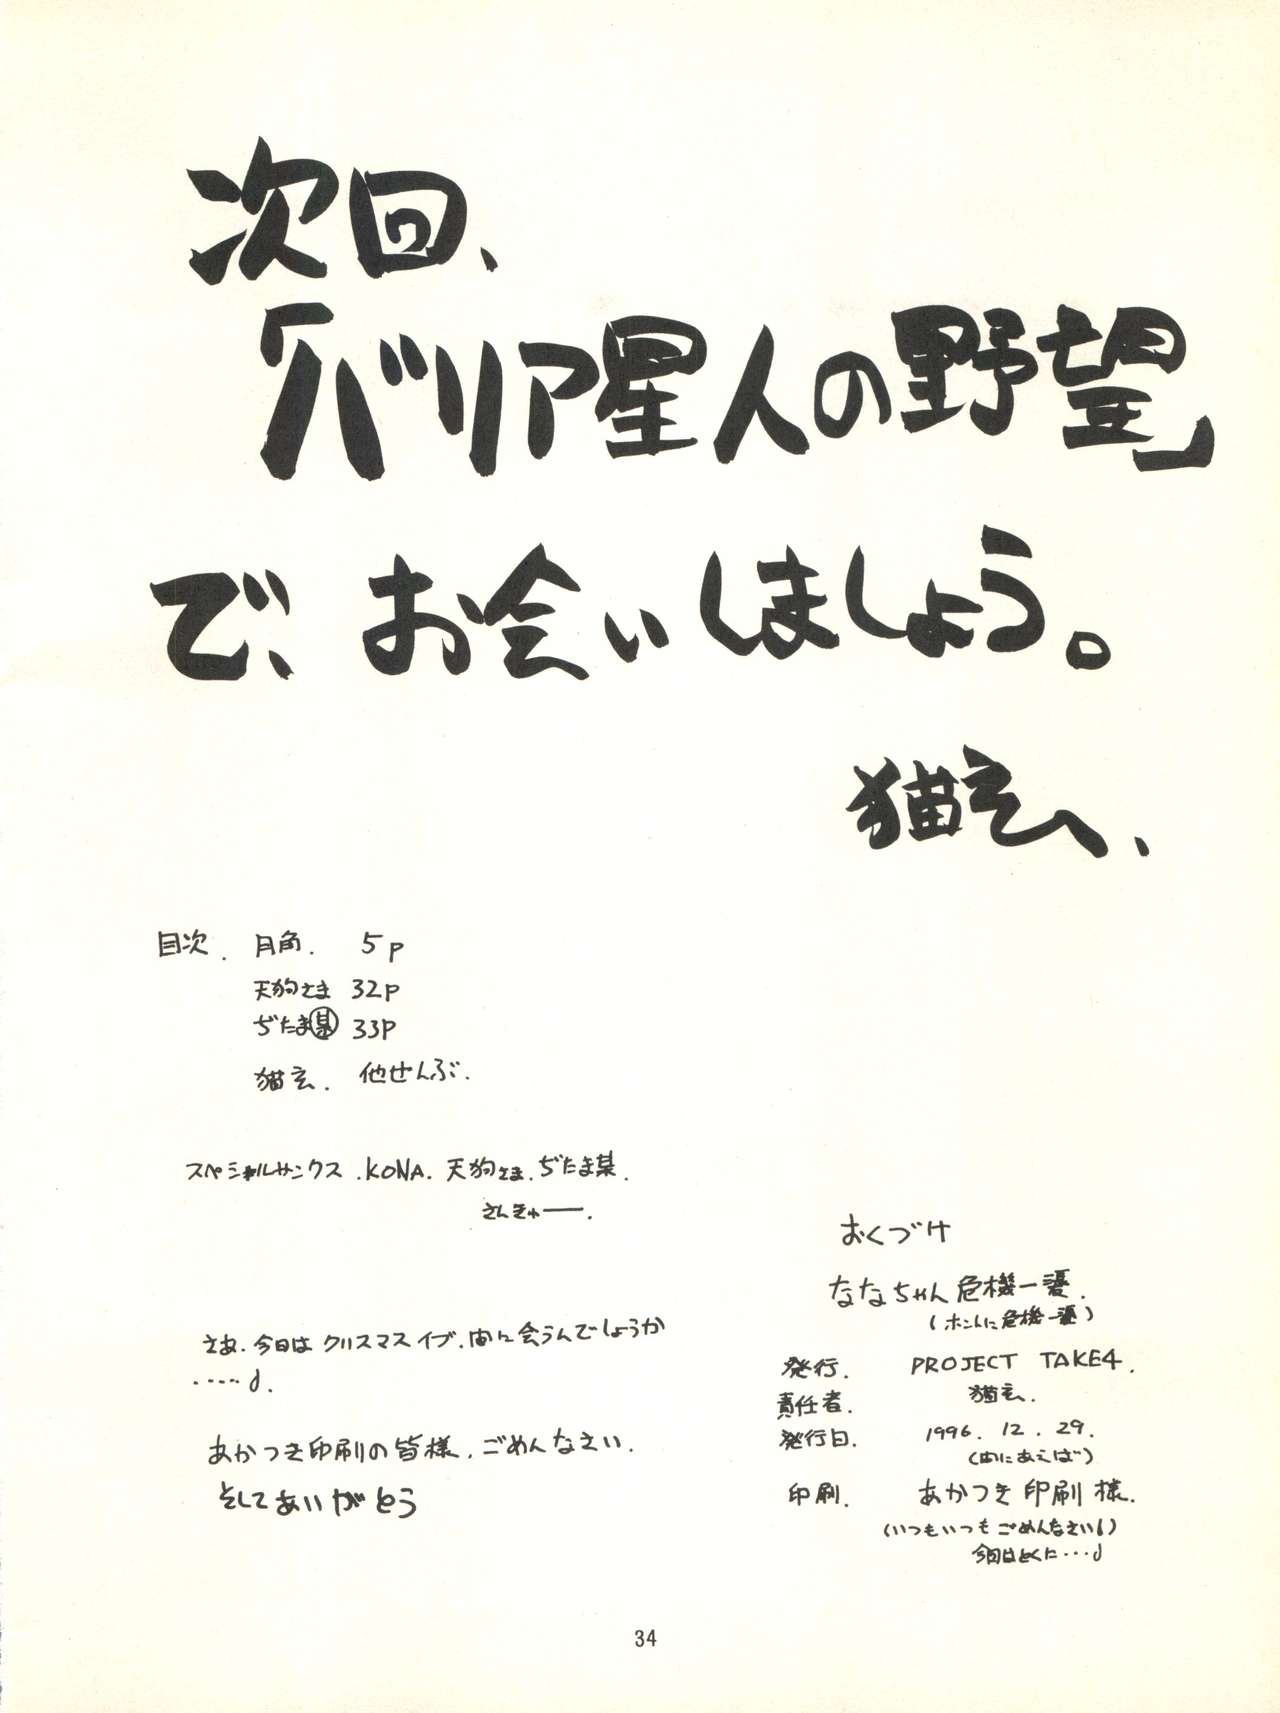 次回、
「バリア星人の野望」
で、お会いしましょう。
猫玄、
目次. 月角. 5p
天狗さま 32p
ぢたま某 33p
猫玄. 他せんぶ.
スペシャルサンクス.KONA.天狗さま.ぢたま某.
さんきゅー.
さあ.今日はクリスマスイブ.間に会うんでしょうか
.....♪.
あかつき印刷の皆様.ごめんなさい.
そしてありがとう
おくづけ
ななちゃん危機一髪.
(ホントに危機一髪)
発行. PROJECT TAKE4.
責任者. 猫玄.
発行日. 1996. 12. 29.
(間にあえば)
印刷. あかつき印刷様.
(いつもいつもごめんなさい♪)
今回はとくに・・・♪
34